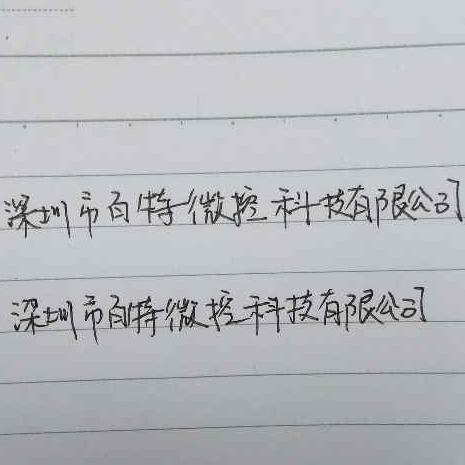 深圳市百特微控科技有限公司
深圳市百特微控科技有限公司